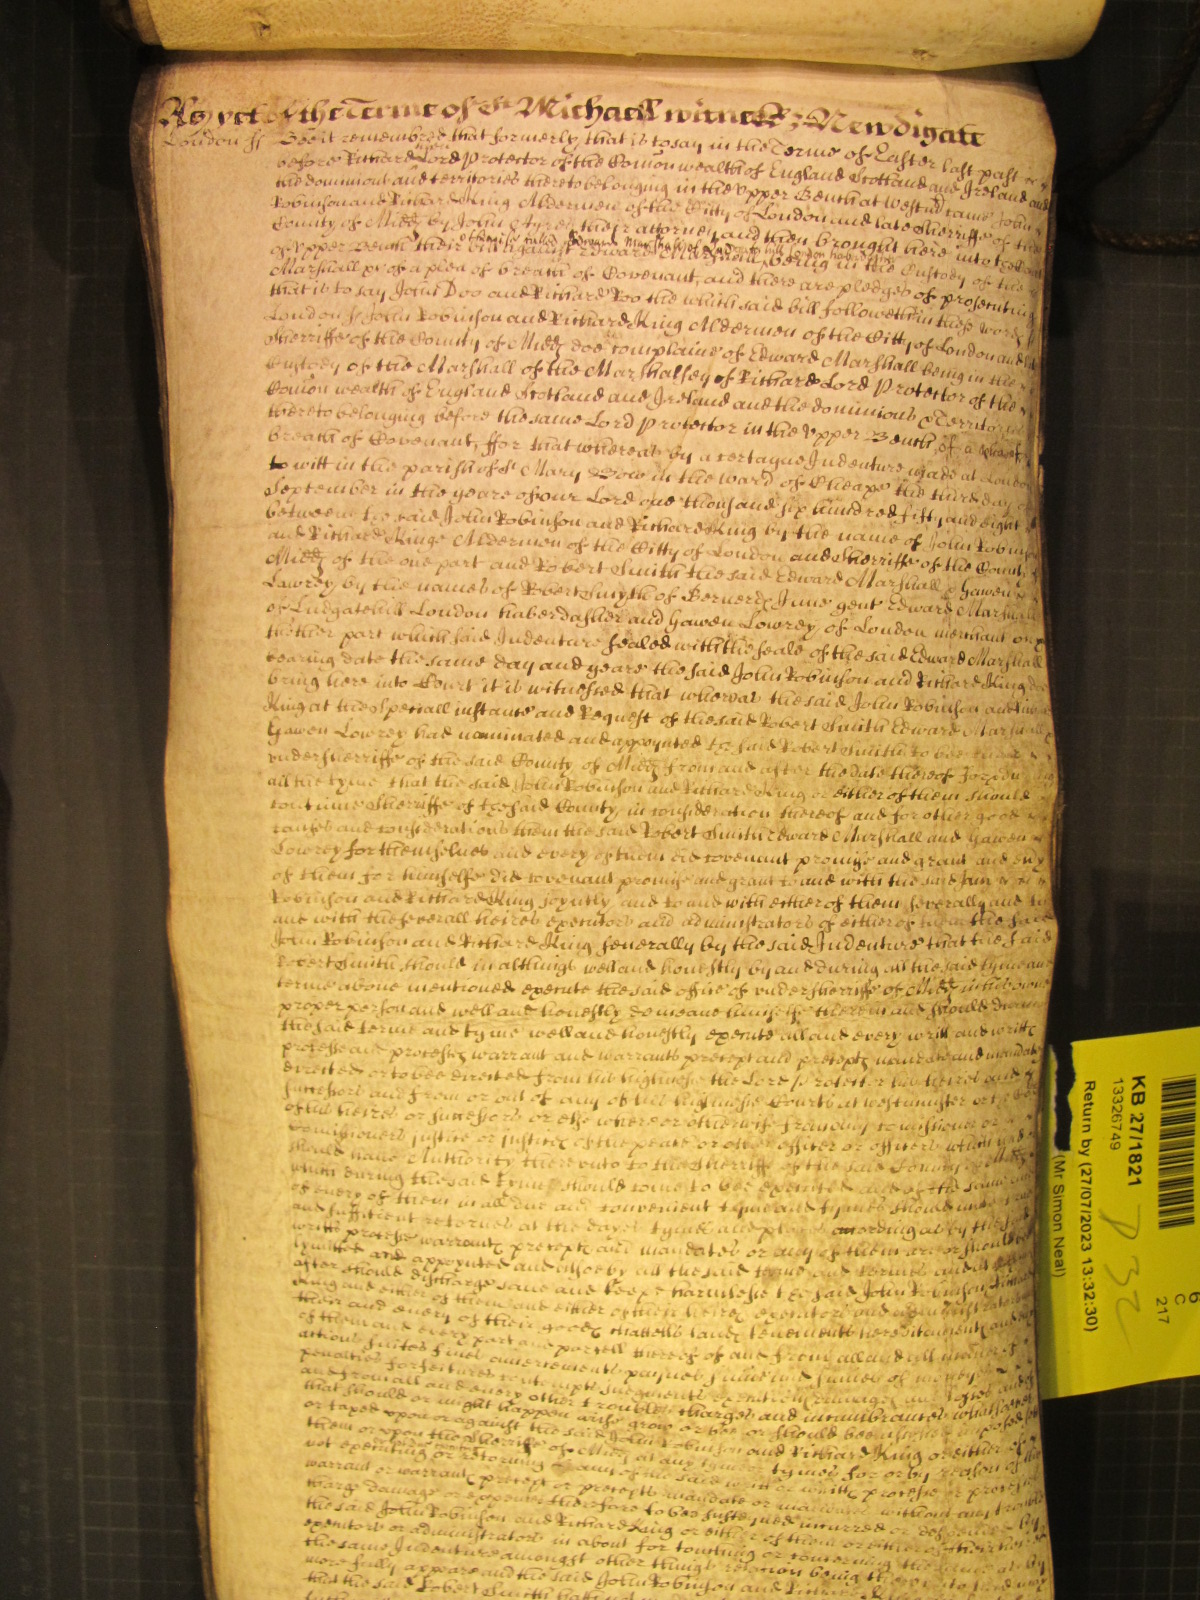 As yet of the Terme of St Michaell witnes Newdigate
London ss Bee it remembred that formerly that is to say in the Terme of Easter last past
before Richard Lord Protector of the Comon wealth of England Scotland and Ireland and
the dominions and territories thereto belonging in the Vpper Bench at Westmr came John
Robinson and Richard King Aldermen of the Citty of London and late Sherriffs of the
County of Midd by John Ayres their attorney and then brought here into the Court
of Vpper Bench their bill against Edward Marshall otherwise called Edward Marshall of Ludgate hill London haberdasher being in the Custody of the
Marshall &c of a plea of breach of Covenant, and there are pledges of prosecuting
that is to say John Doo and Richard Roo the which said bill followeth in these words
London ss John Robinson and Richard King Aldermen of the Citty of London and late
Sherriffs of the County of Midd doe complaine of Edward Marshall being in the
Custody of the Marshall of the Marshalsey of Richard Lord Protector of the
Comon wealth of England Scotland and Ireland and the dominions & Territories
thereto belonging before the same Lord Protector in the Vpper Bench, of a plea of
breach of Covenant, ffor that whereas by a certayne Indenture made at London
to witt in the parish of St Mary Bow in the ward of Cheape the third day of
September in the yeare of our Lord one thousand six hundred fifty and eight
betweene the said John Robinson and Richard King by the name of John Robinson
and Richard Kinge Aldermen of the Citty of London and Sherriffs of the County of
Midd of the one part and Robert Smith the said Edward Marshall & Gawen
Lowrey by the names of Robert Smyth of Bernerds Inne gent Edward Marshall
of Ludgatehill London haberdasher and Gawen Lowrey of London merchant on
th'other part which said Indenture sealed with the seale of the said Edward Marshall
bearing date the same day and yeare the said John Robinson and Richard King doe
bring here into Court it is witnessed that whereas the said John Robinson and Richard
King at the Speciall instance and Request of the said Robert Smith Edward Marshall &
Gawen Lowrey had nominated and appoynted the said Robert Smith to bee
vndersherriffe of the said County of Midd from and after the date thereof for
all the tyme that the said John Robinson and Richard King or either of them should
continue Sherriffs of the said County, in consideration thereof and for other good
causes and considerations them the said Robert Smith Edward Marshall and Gawen
Lowrey for themselves and every of them did covenant promise and grant and every
of them for himselfe did covenant promise and grant to and with the said John
Robinson and Richard King joyntly and to and with either of them severally and to
and with the severall heires executors and administrators of either of them the said
John Robinson and Richard King severally by the said Indenture that the said
Robert Smith should in all things well and honestly by and during all the said tyme and
terme above mentioned execute the said office of vndersherriffe of Midd in his owne
proper person and well and honestly demeane himselfe therein and should during
the said terme and tyme well and honestly execute all and every writt and writts
processe and processes warrant and warrants precept and precepts mandate and mandates
directed or to bee directed from his highnesse the Lord Protector his heires and
successors and from or out of any of his highnesse Courts at westminster or
of his heires or successors or else where or otherwise from any comissioner or
comissioners justice or justices of the peace or other officer or officers which
should have Authority thereunto to the Sherriffe of the said County of Midd
which during the said tyme should come to bee executed and of the same and
of every of them in all due and convenient tyme and tymes should make true
and sufficient retornes at the dayes tymes and places according as by the said
writts processe warrants precepts and mandates or any of them are or should be
lymitted and appoynted and alsoe by all the said tyme and terme and
after should discharge save and keepe harmelesse the said John Robinson Richard
King and either of them and either of their heires executors and administrators
their and every of their goods chattells lands tenements hereditaments and
of them and every part and parcell thereof of and from all and all manner of
actions suites fines amerciaments paines summe and summes of money
penalties forfeitures contempts judgments executions damages and losses and
and from all and every other troubles charges and incumbrances whatsoever
that should or might happen arise grow or bee or should bee imposed
or taxed vpon or against the said John Robinson and Richard King or either of
them or vpon the Sherriffs of Midd at any tyme or tymes for or by reason of the
not executing or retorning of any of the said writt or writts processe or processes
warrant or warrants precept or precepts mandate or mandates without any trouble
charge damage or expence therefore to bee susteyned incurred or
the said John Robinson and Richard King or either of them or either of their heires
executors or administrators in about for touching or concerning the
the same Indenture amongst other things relation being thereunto had may
more fully appeare and the said John Robinson and Richard
that the said Robert Smith
KB 27/1821
13326749
Return by (27/07/2023 13:32:30)
(Mr Simon Neal)
6
C
217